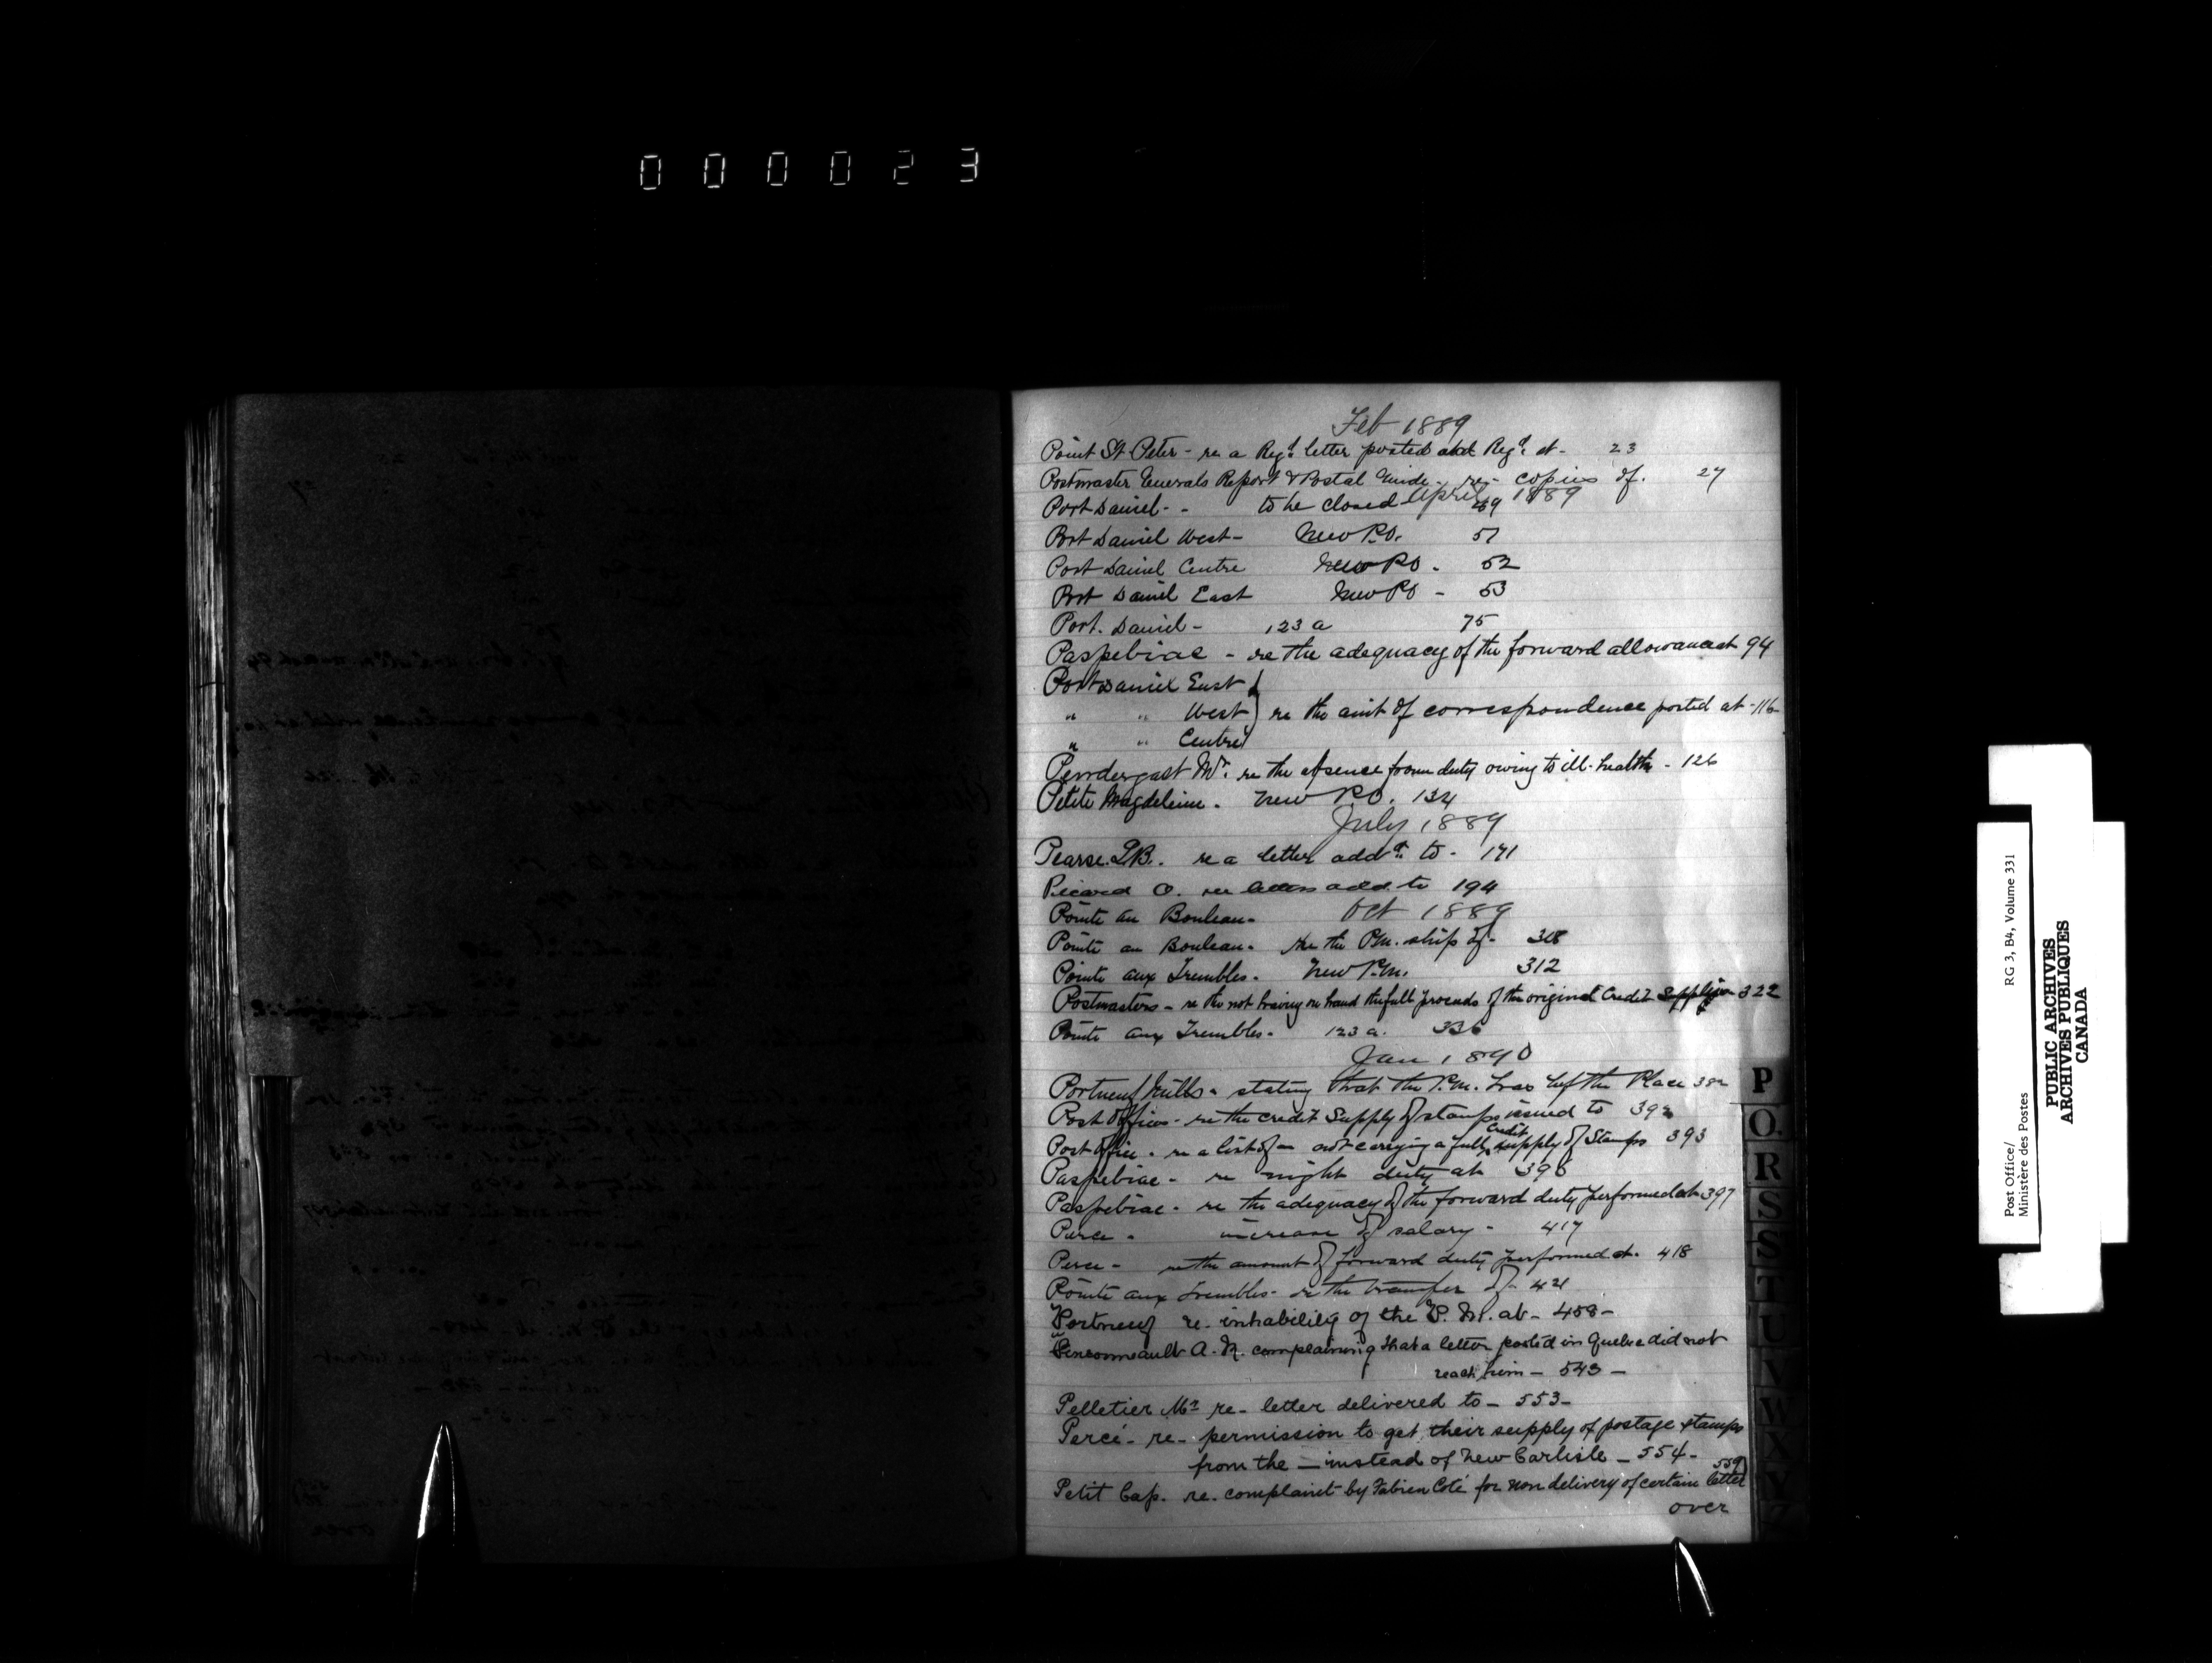 000023
Feb 1889
Point St Peter - re a Regd letter posted and Regd at - 23
Postmaster Generals Report & Postal Guide - re - copies of. 27
April 1889
Port Daniel - - to be closed 49
Port Daniel West - New P.O. 51
Port Daniel Centre New PO - 52
Port Daniel East New PO - 53
Port. Daniel - 123 a 75
Paspebiac - re the adequacy of the forward allowance at 94
Port Daniel East
" " West } re the amt of correspondence posted at - 116
" " Centre
Pendergast Mr. re the absence from duty owing to ill-health - 126
Petite Magdeleine. New P.O. 134
July 1889
Pearse. re a letter addd to - 171
Picard O. re letters add. to 194
Oct 1889
Pointe au Bouleau -
Pointe au Bouleau - re the P.M. ship of -
Pointe aux Trembles - New P.M. 312
Postmasters - re the not having on hand the full proceeds of the original Credit Supply 322
Pointe aux Trembles - 123 a. 336
Jan 1890
Portneuf Mills - stating that the P.M. has left the Place
Post Offices - re the credit Supply of stamps issued to
Post Office - re a list of - not carrying a full Credit supply of Stamps 393
Paspebiac - re night duty at
Paspebiac - re the adequacy of the forward duty performed at 397
Perce - increase of salary - 417
Perce - re the amount of forward duty performed at. 418
Pointe aux Trembles - re the transfer of - 421
Portneuf re- inhability of the P. M. at - 458 -
A. N. complaining that a letter posted in Quebec did not
reach him - 543 -
Pelletier Mr re - letter delivered to - 553 -
Percé - re - permission to get their supply of postage stamps
from the - instead of New Carlisle - 554 -
Petit Cap. re. complaint by Fabien Coté for non delivery of certain letter 559
over
P
Q
R
S
S
T
U
V
W
X
Y
Z
Post Office/ RG 3, B4, Volume 331
Ministère des Postes
PUBLIC ARCHIVES
ARCHIVES PUBLIQUES
CANADA